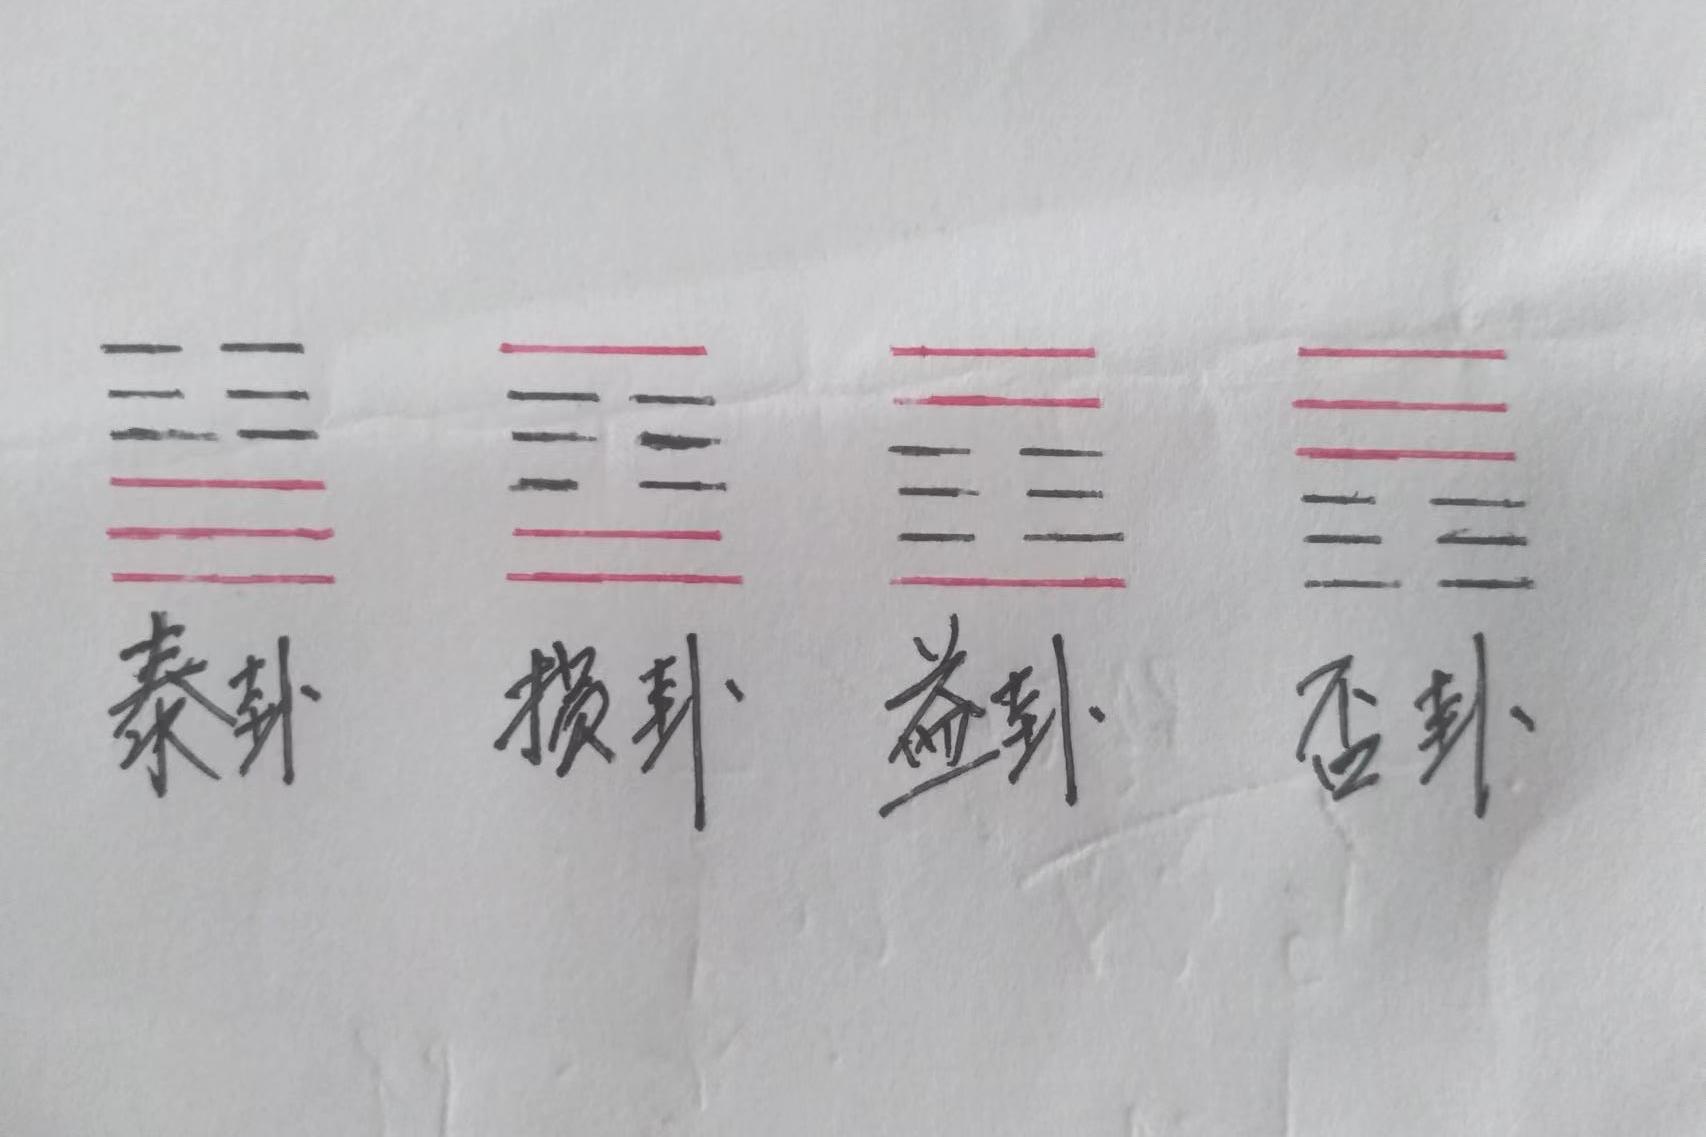 泰卦 损卦 益卦 否卦